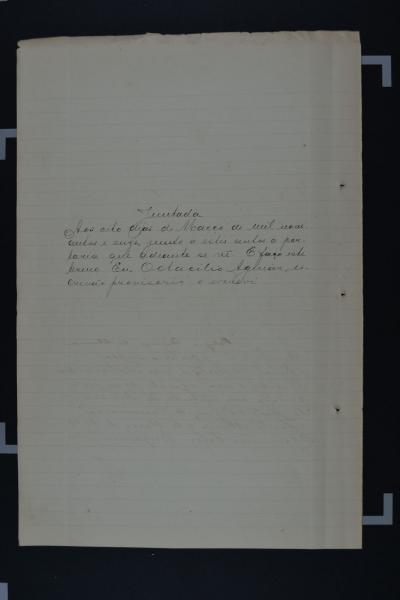 Juntada
Aos oito dias de Março de mil nove
centos e onze, junto a estes autos a por-
taria que adiante se vê. E faço este
termo. Eu Octacilio Aguiar, es-
crivão provisorio o escrevi